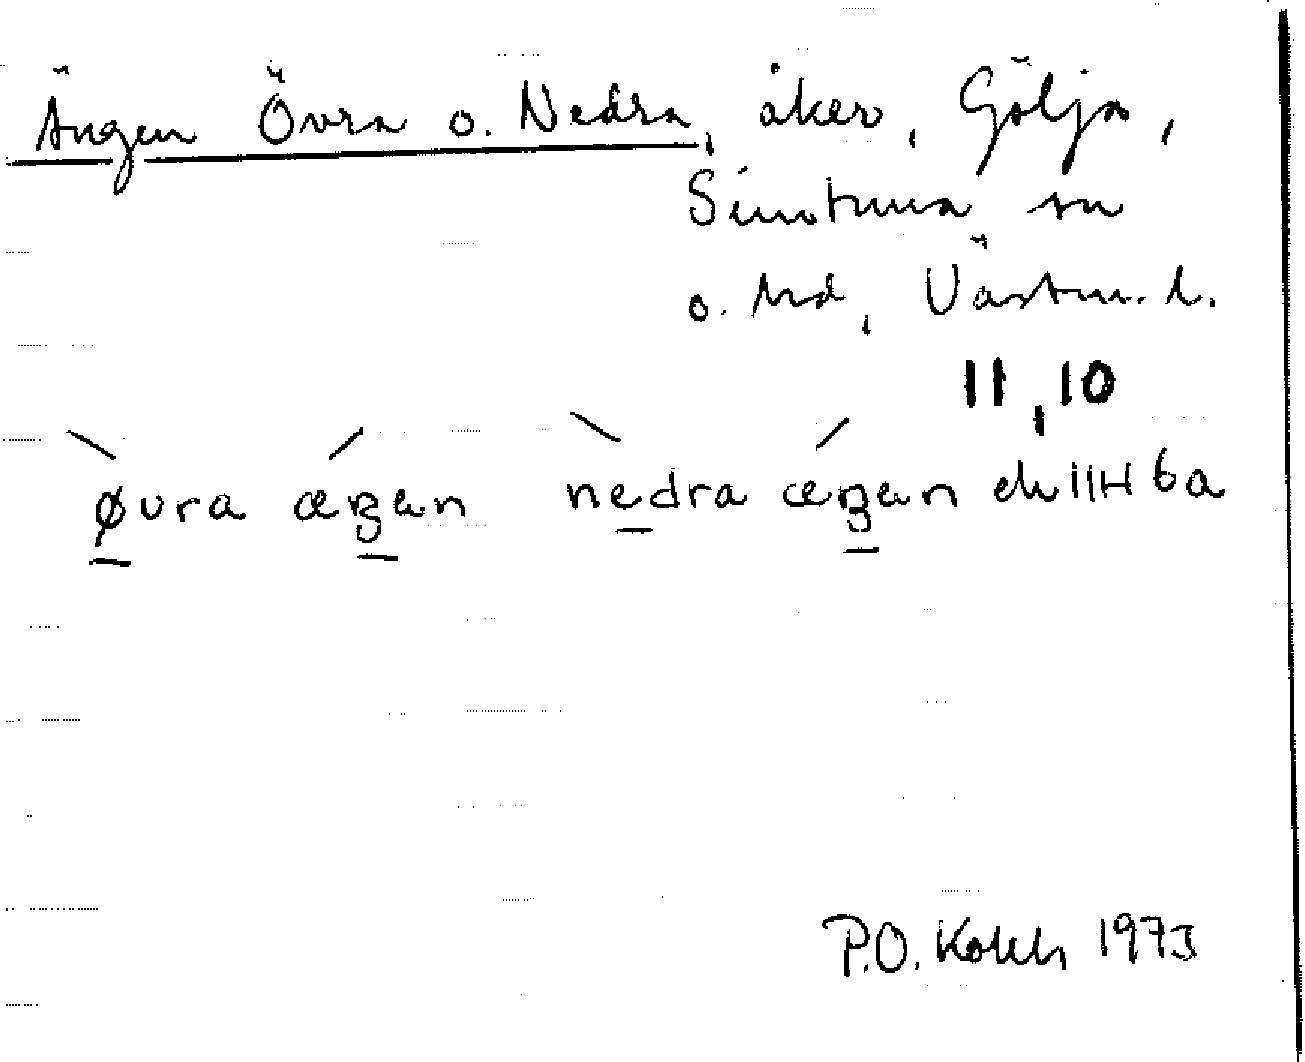 Ängen Övra o. Nedra, åker, Gölja,
Simtuna sn
o. hd, Västm. l.
11,10
øvra æŋen nedra æŋen ek 11H 6a
P.O. 1973